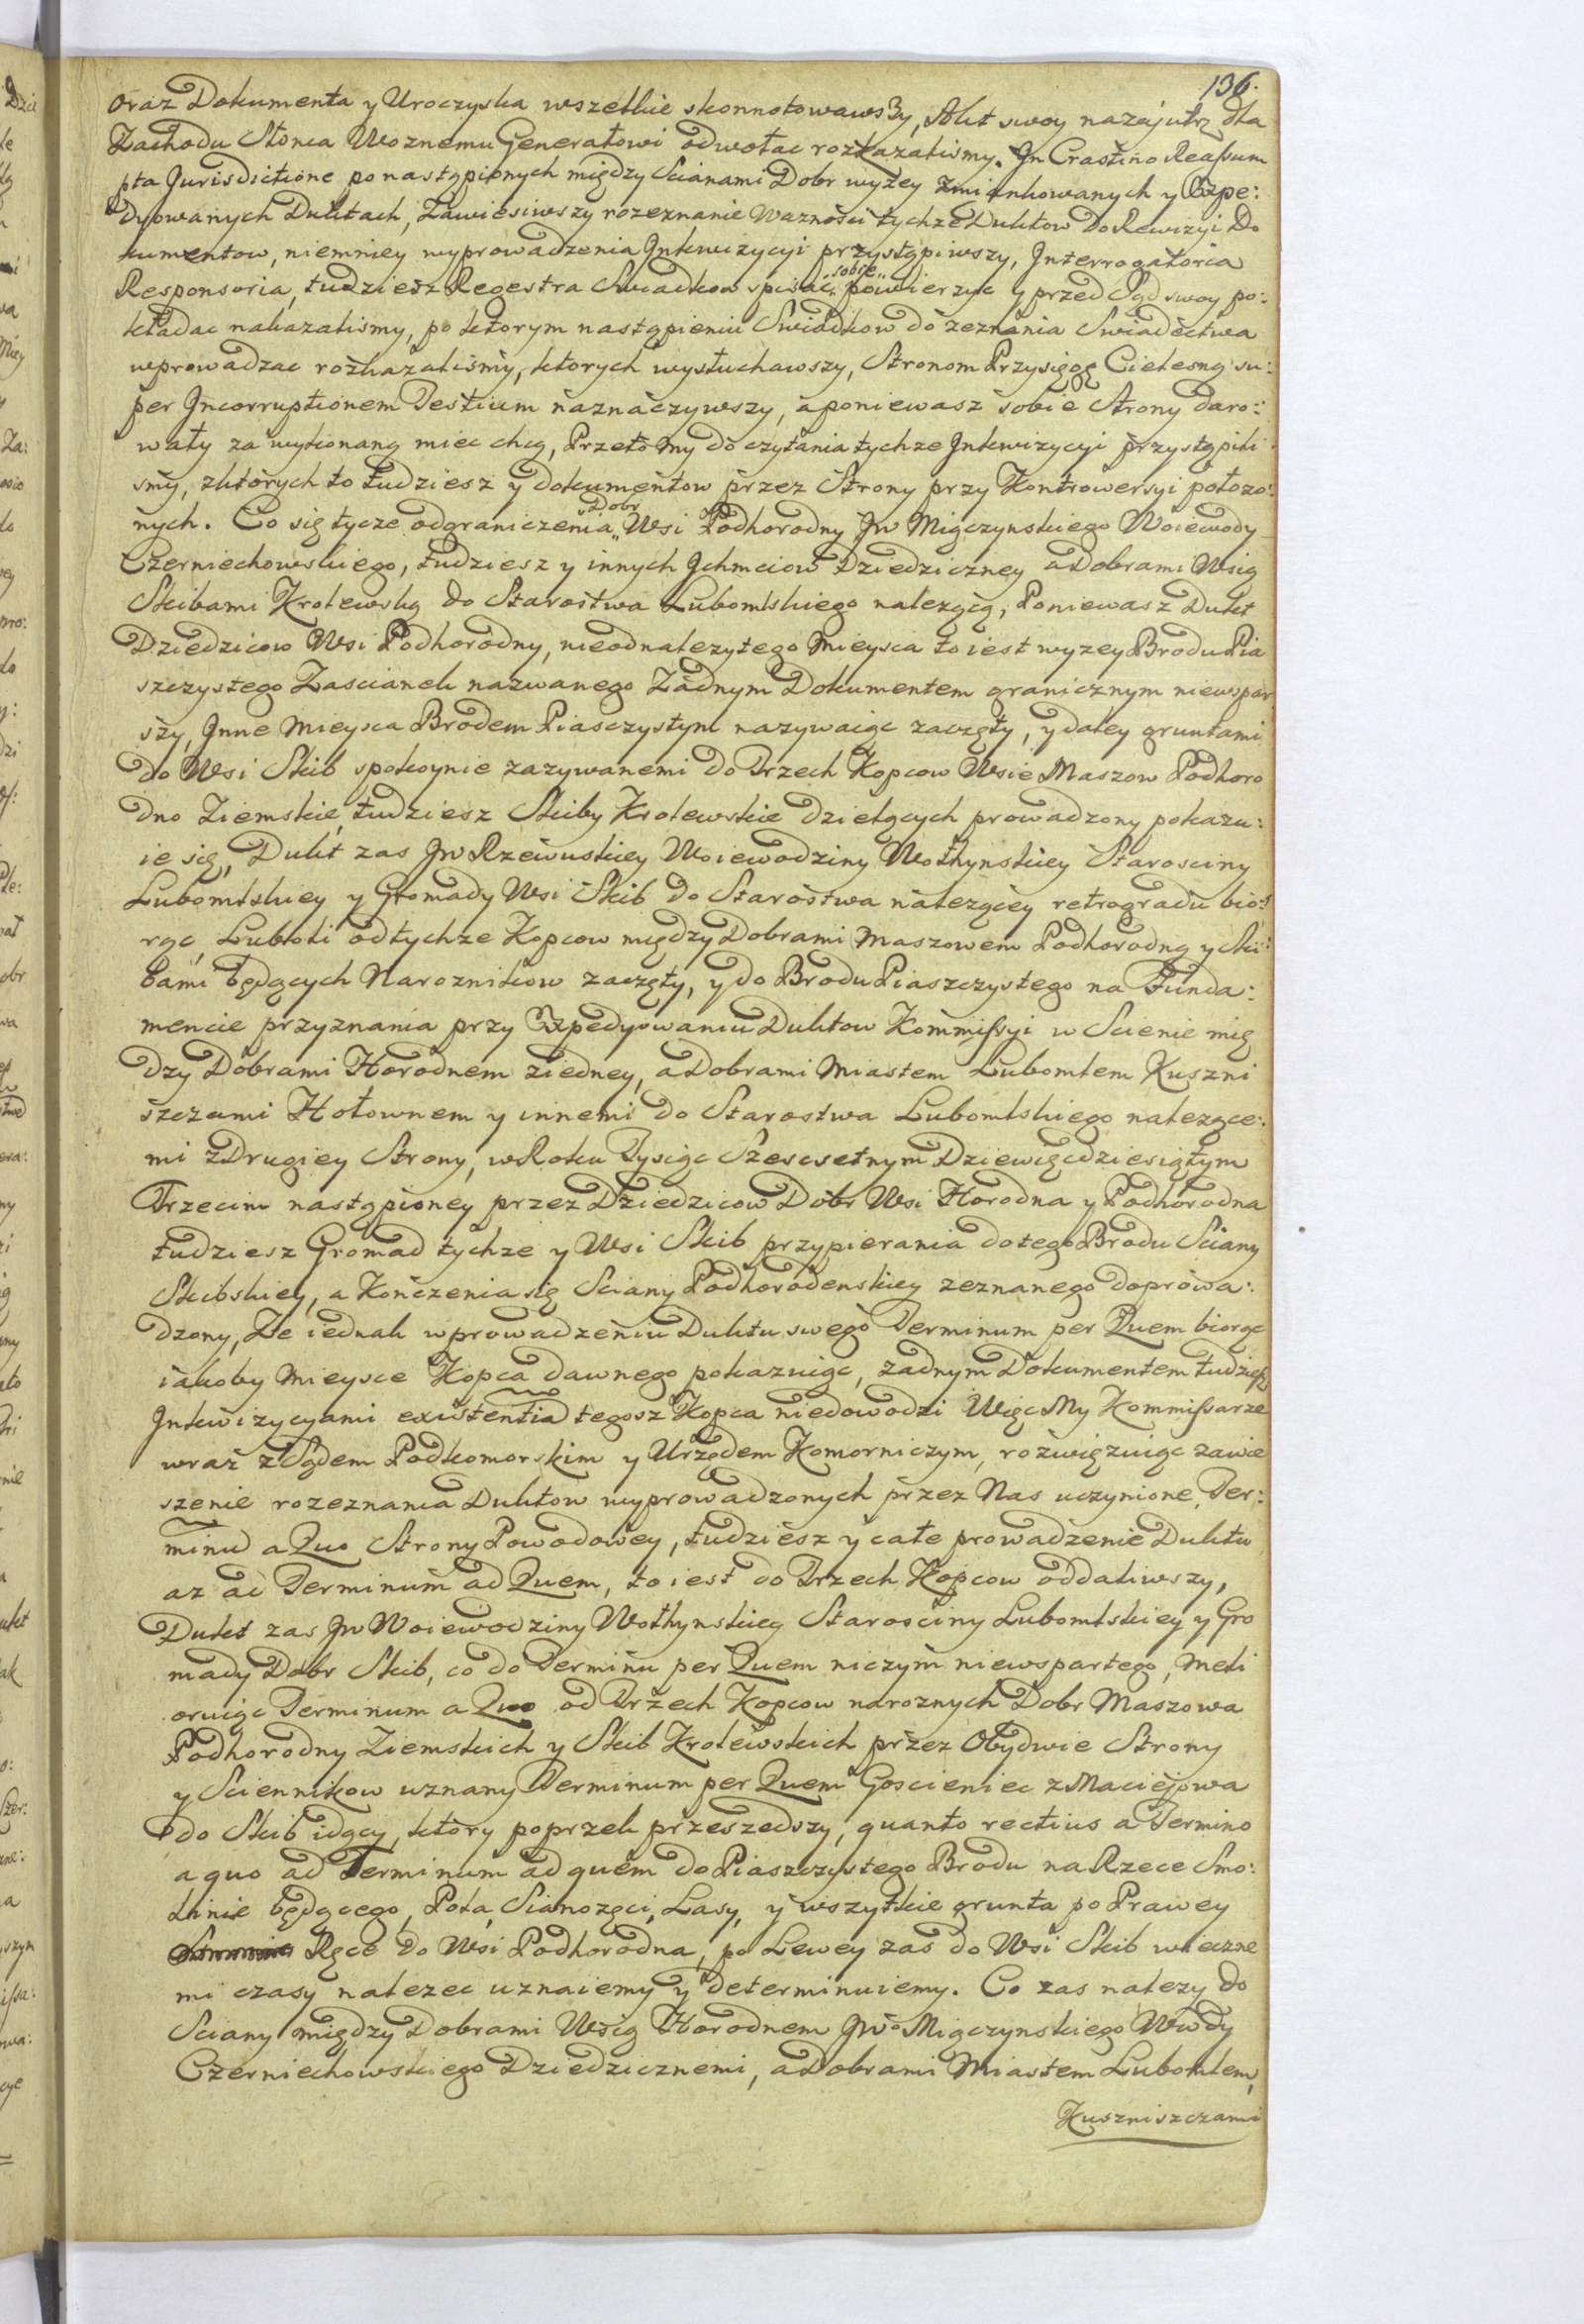 136.
oraz Dokumenta y Uroczyska wszelkie skonnotowawszy, Akt swoy nazajutrz dla
Zachodu Słonca Woznemu Generałowi odwołac rozkazalismy. In Crastino Reassum
pta Jurisdictione po nastąpionych między Scianami Dobr wyżey zmiankowanych y Expe:
dyowanych Duktach, Zawiesiwszy rozeznanie Waznosci tychze Duktow do Rewizyi Do
kumentow, niemniey wyprowadzenia Inkwizycyi przystąpiwszy, Interrogatoria
Responsoria, tudziesz Regestra Swiadkow spisac „sobie„ powierzyc y przed Sąd swoy po:
kładac nakazalismy, po ktorym nastąpieniu Swiadkow do zeznania Swiadectwa
wprowadzac rozkazalismy, ktorych wysłuchawszy, Stronom Przysięgę Cielesną su:
per Incorruptionem Testium naznaczywszy, a poniewasz sobie Strony daro:
wały za wykonaną miec chcą, Przeto my do czytania tychze Inkwizycyi przystąpili
smy, z ktorych to tudziesz y dokumentow przez Strony przy Kontrowersyi połozo:
nych. Co się tycze odgraniczenia „Dobr„ Wsi Podhorodny Jw Miączynskiego Woiewody
Czerniechowskiego, tudziesz y innych Ichmciow Dziedziczney a Dobrami Wsią
Skibami Krolewską do Starostwa Lubomlskiego nalezącą, Poniewasz Dukt
Dziedzicow Wsi Podhorodny, nieodnalezytego Mieysca to iest wyzey Brodu Pia
szczystego Zascianek nazwanego Żadnym Dokumentem granicznym niewspar
szy, Inne Mieysca Brodem Piasczystym nazywaiąc zaczęty, y daley gruntami
do Wsi Skib spokoynie zazywanemi do Trzech Kopcow Wsie Maszow Podhoro
dno Ziemskie, tudziesz Skiby Krolewskie dzielących prowadzony pokazu:
ie się, Dukt zas Jw Rzewuskiey Woiewodziny Wołhynskiey Starosciny
Lubomlskiey y Gromady Wsi Skib do Starostwa nalezącey retrogradu bio:
rąc, Luboli od tychze Kopcow między Dobrami Maszowem Podhorodną y Ski:
bami będących Naroznikow zaczęty, y do Brodu Piaszczystego na Funda:
mencie przyznania przy Expedyowaniu Duktow Kommissyi w Scienie mię
dzy Dobrami Horodnem z iedney, a Dobrami Miastem Lubomlem Kuszni
szczami Hołownem y innemi do Starostwa Lubomlskiego nalezące:
mi z Drugiey Strony, w Roku Tysiąc Szescsetnym Dziewięcdziesiątym
Trzecim nastąpioney przez Dziedzicow Dobr Wsi Horodna y Podhorodna
tudziesz Gromad tychze y Wsi Skib przypierania do tego Brodu Sciany
Skibskiey, a Kończenia się Sciany Podhorodenskiey zeznanego doprowa:
dzony, Ze iednak w prowadzeniu Duktu swego Terminum per Quem biorąc
iakoby Mieysce Kopca dawnego pokazuiąc, zadnym Dokumentem tudziesz
Inkwizycyami existentia tegosz Kopca niedowodzi Więc My Kommissarze
wraz z Sądem Podkomorskim y Urzędem Komorniczym, rozwięzuiąc zawie
szenie rozeznania Duktow wyprowadzonych przez Nas uczynione, Ter:
minu a Quo Strony Powodowey, tudziesz y całe prowadzenie Duktu
az ad Terminum ad Quem, to iest do Trzech Kopcow oddaliwszy,
Dukt zas Jw Woiewodziny Wołhynskiey Starosciny Lubomlskiey y Gro
mady Dobr Skib, co do Terminu per Quem niczym niewspartego, Meli
oruiąc Terminum a Quo od Trzech Kopcow naroznych Dobr Maszowa
Podhorodny Ziemskich y Skib Krolewskich przez Obydwie Strony
y Sciennikow uznany Terminum per Quem Goscieniec z Maciejowa
do Skib idący, ktory poprzek przeszedszy, quanto rectius a Termino
a quo ad Terminum ad quem do Piaszczystego Brodu na Rzece Smo:
linie będącego, Pola, Sianozęci, Lasy, y wszytkie grunta po Prawey
Ręce do Wsi Podhorodna, po Lewey zas do Wsi Skib wieczne
mi czasy nalezec uznaiemy y determinuiemy. Co zas nalezy do
Sciany między Dobrami Wsią Horodnem Jwo Miączynskiego Wwdy
Czerniechowskiego Dziedzicznemi, a Dobrami Miastem Lubomlem,
Kuszniszczami